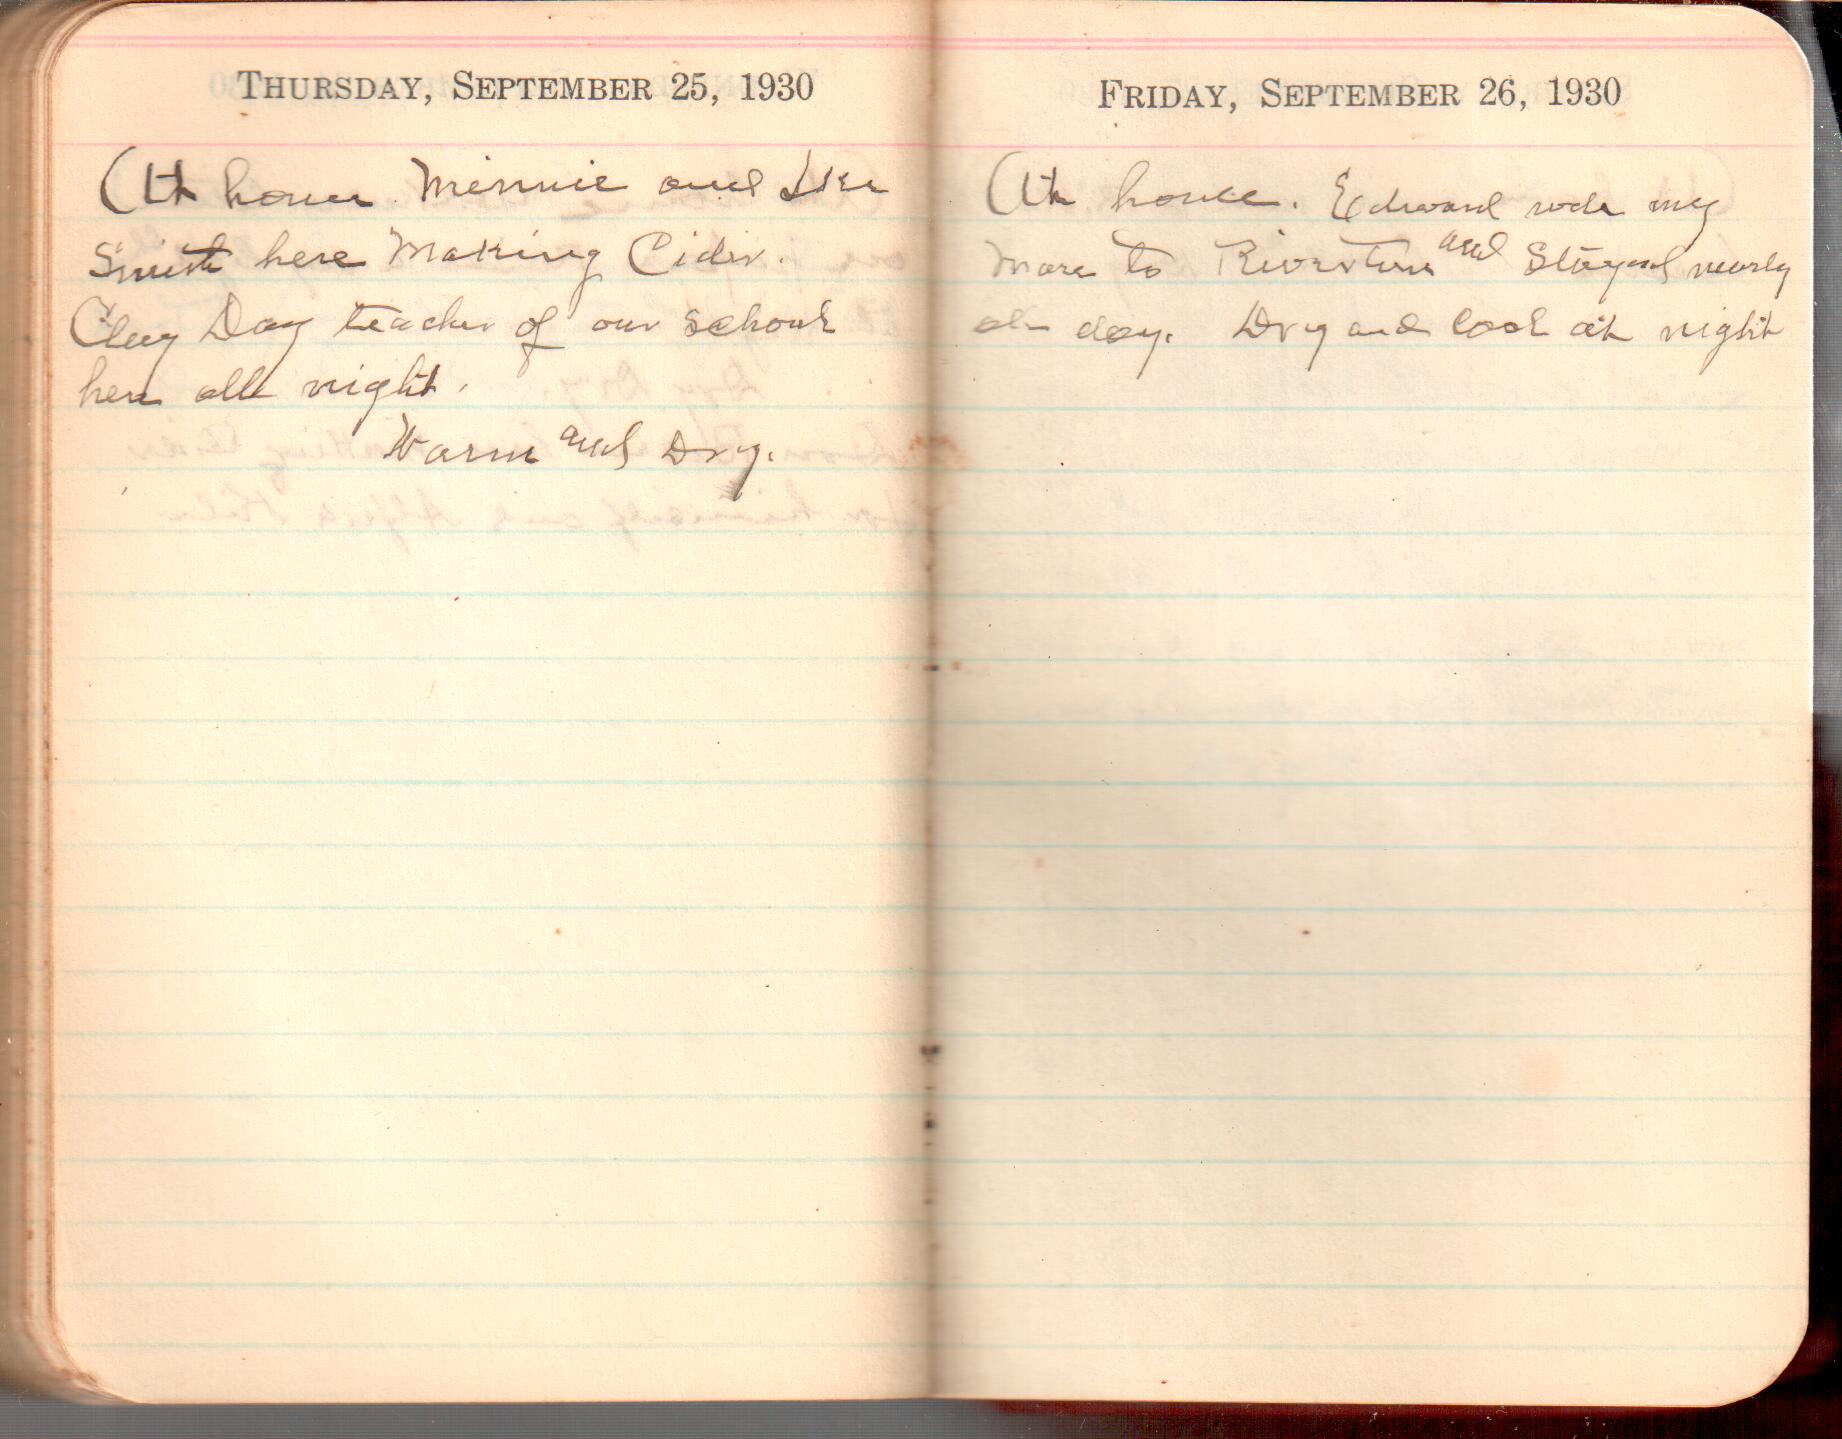 THURSDAY, SEPTEMBER 25, 1930
At home Minnie and Ike
Smith here Making Cider.
Clay Day teacher of our school
here all night.
Warm and Dry.
FRIDAY, SEPTEMBER 26, 1930
At home. Edward rode my
mare to Riverton and Stayed nearly
all day. Dry and cool at night